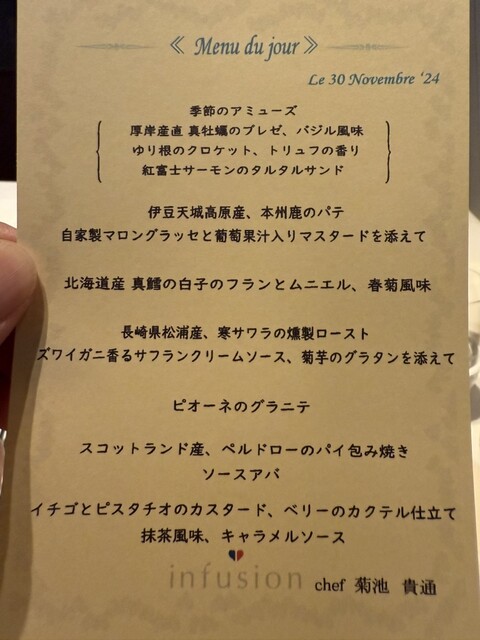 《 Menu du jour 》
Le 30 Novembre '24
季節のアミューズ
厚岸産直 真牡蠣のブレゼ、バジル風味
ゆり根のクロケット、トリュフの香り
紅富士サーモンのタルタルサンド
伊豆天城高原産、本州鹿のパテ
自家製マロングラッセと葡萄果汁入りマスタードを添えて
北海道産 真鱈の白子のフランとムニエル、春菊風味
長崎県松浦産、寒サワラの燻製ロースト
ズワイガニ香るサフランクリームソース、菊芋のグラタンを添えて
ピオーネのグラニテ
スコットランド産、ペルドローのパイ包み焼き
ソースアバ
イチゴとピスタチオのカスタード、ベリーのカクテル仕立て
抹茶風味、キャラメルソース
infusion chef 菊池 貴通